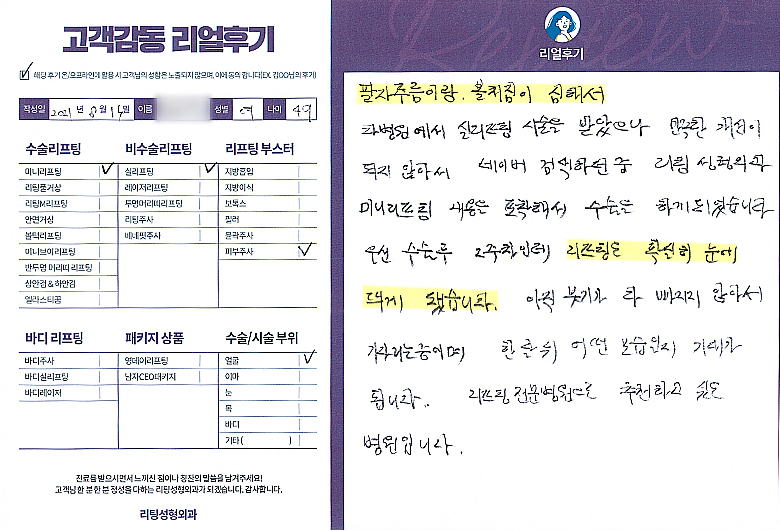 고객감동 리얼후기
해당 후기 온/오프라인에 활용 시 고객님의 성함은 노출되지 않으며, 이에 동의 합니다(EX. 김OO님의 후기)
작성일 2021년 8월 14일 이름 성별 여 나이 49
수술리프팅
미니리프팅
리팅풀거상
리팅M리프팅
안면거상
볼턱리프팅
이니브이리프팅
반투명 머리띠 리프팅
상안검 & 하안검
엘라스티꿈
비수술리프팅
실리프팅
레이저리프팅
투명머리띠리프팅
리팅주사
바네핏주사
리프팅 부스터
지방흡입
지방이식
보톡스
필러
윤곽주사
피부주사
바디 리프팅
바디주사
바디실리프팅
바디레이저
패키지 상품
영데이리프팅
남자CEO패키지
수술/시술 부위
얼굴
이마
눈
목
바디
기타( )
진료를 받으시면서 느끼신 점이나 칭찬의 말씀을 남겨주세요!
고객님 한 분 한 분 정성을 다하는 리팅성형외과가 되겠습니다. 감사합니다.
리팅성형외과
Review
리얼후기
팔자주름이랑. 볼처짐이 심해서
타병원에서 실리프팅 시술을 받았으나 만족한 개선이
되지 않아서 네이버 검색하던 중 리팅 성형외과
미니리프팅 내용을 포착해서 수술을 하게되었습니다
우선 수술후 2주차인데 리프팅은 확실히 눈에
띄게 됐습니다. 아직 붓기가 다 빠지지 않아서
가라앉는중이며 한 달 뒤 어떤 모습일지 기대가
됩니다. 리프팅 전문병원으로 추천하고 싶은
병원입니다.